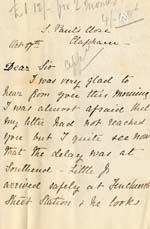 £1.12 - for 2 months
S. Paul's Close
Clapham.
Oct 19th
Dear Sir
I was very glad to
hear from you this morning
I was almost afraid that
my letter had not reached
you but I quite see now
that the delay was at
Southend - Little
arrived safely at Fenchurch
Street Station & he looks